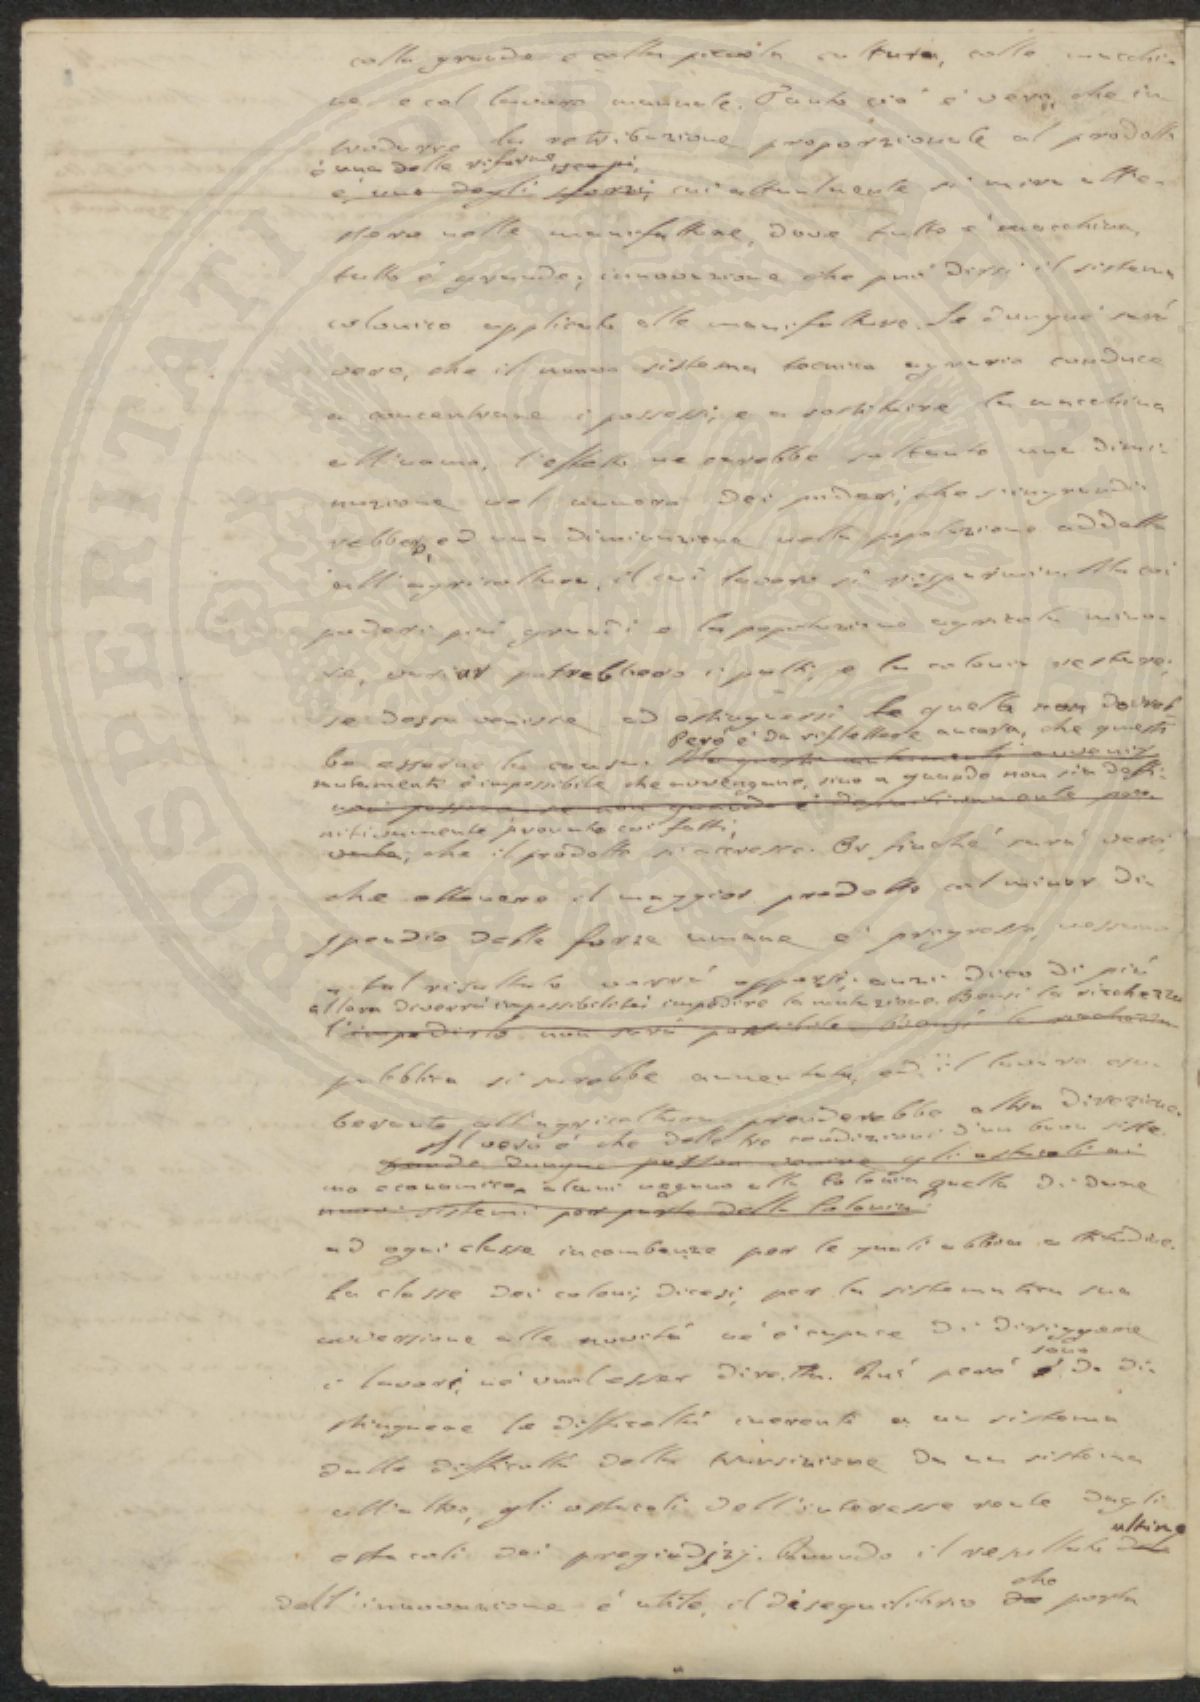 colla grande e colla piccola cultura, colle macchi-
ne e col lavoro manuale. Tanto ciò è vero, che in-
trodurre la retribuzione proporzionale al prodotto
è una delle riforme, scopi,
è uno degli sforzi, cui attualmente si mira
nelle manifatture, dove tutto è macchina,
tutto è grande; innovazione che può dirsi il sistema
colonico applicato alle manifatture. Se dunque sarà
vero, che il nuovo sistema tecnico agrario conduce
a concentrare i possessi, e a sostituire la macchina
all'uomo, l'effetto ne sarebbe soltanto una dimi-
nuzione nel numero dei poderi, che s'ingrandi-
rebbero, ed una diminuzione nella popolazione addetta
all'agricoltura, il cui lavoro si risparmia. Ma coi
poderi più grandi e la popolazione agricola mino-
re, variar potrebbero i patti, e la colonia restare;
se dessa venisse ad estinguersi quella non dovreb-
Però è da riflettere ancora, che questi
be esserne la causa. Ma questi mutamenti avvenir
mutamenti è impossibile che avvengano, sino a quando non sia defi-
non possono se non quando è definitivamente pro-
nitivamente provato coi fatti,
vato, che il prodotto si accresce. Or finché sarà vero,
che ottenere il maggior prodotto col minor di-
spendio delle forze umane è progresso, nessuno
a tal risultato vorrà opporsi; anzi dico di più
allora diverrà impossibilità impedire la mutazione. Bensì la ricchezza
l'impedirlo non sarà possibile. Bensì la ricchezza
pubblica si sarebbe aumentata, ed il lavoro esu-
berante all'agricoltura prenderebbe altra direzione.
Il vero è che delle tre condizioni d'un buon siste-
dunque posson venire gli ostacoli ai
ma economico, alcuni negano alla Colonia quella di dare
nuovi sistemi per parte della Colonia?
ad ogni classe incombenze per le quali abbia attitudine.
La classe dei coloni, dicesi, per la sistematica sua
avversione alle novità né è capace di dirigere
sono
i lavori, né vuol esser diretta. Quì però è da di-
stinguere le difficoltà inerenti a un sistema
dalle difficoltà della transizione da un sistema
all'altro, gli ostacoli dell'interesse reale dagli
ultimo
ostacoli dei pregiudizj. Quando il resultato
che
dell'innovazione è utile, il disequilibrio da porta